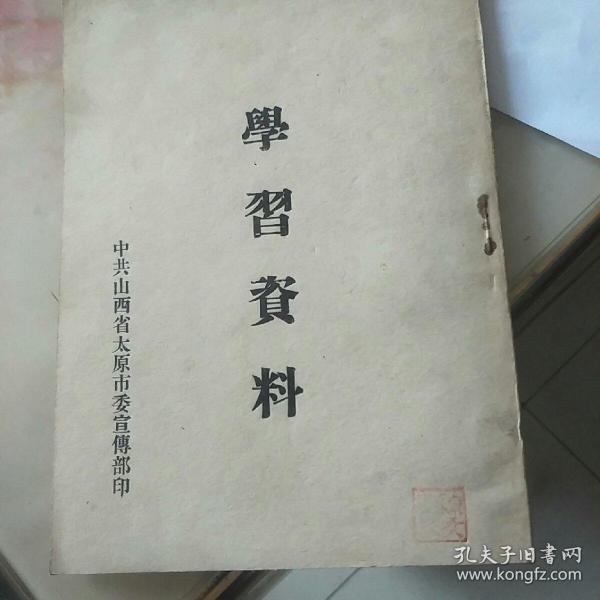 學習資料
中共山西省太原市委宣傳部印
孔夫子旧書网
www.kongfz.com